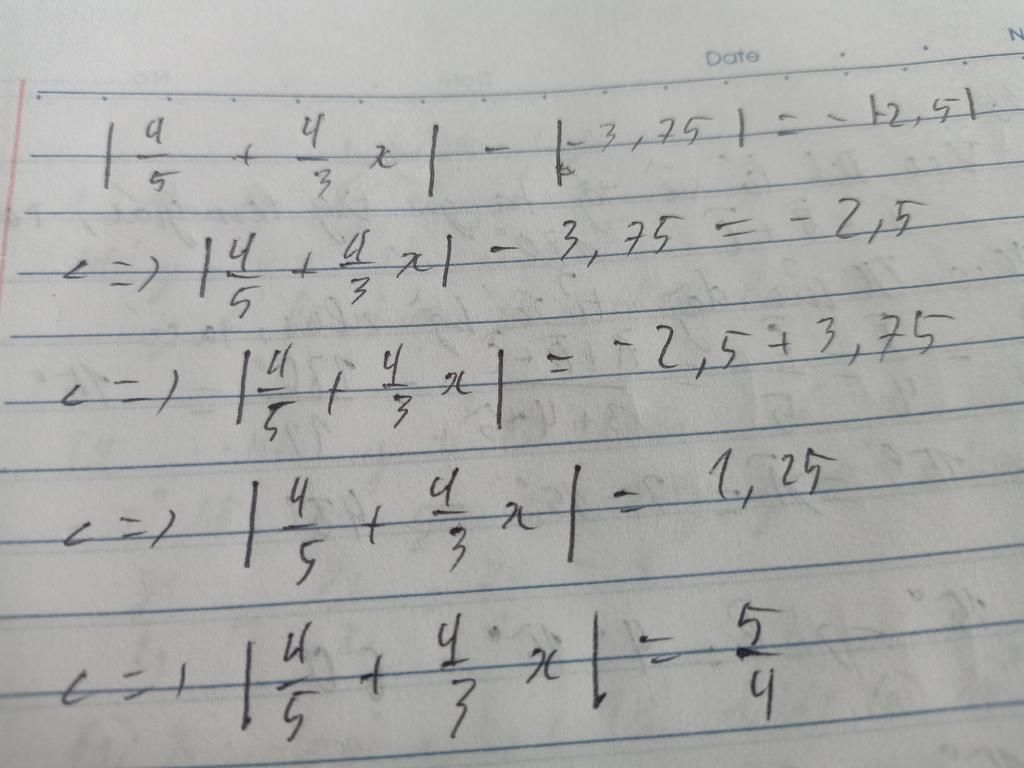 Date
|4/5 + 4/3 x| - |-3,75| = -|2,5|
<=> |4/5 + 4/3 x| - 3,75 = -2,5
<=> |4/5 + 4/3 x| = -2,5 + 3,75
<=> |4/5 + 4/3 x| = 1,25
<=> |4/5 + 4/3 x| = 5/4